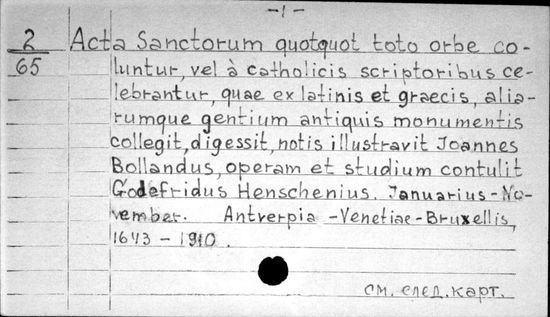 -1-
2 Acta Sanctorum quotquot toto orbe co-
65 luntur, vel à catholicis scriptoribus ce-
lebrantur, quae ex latinis et graecis, alia-
rumque gentium antiquis monumentis
collegit, digessit, notis illustravit Joannes
Bollandus, operam et studium contulit
Godefridus Henschenius. Januarius-No-
vember. Antverpia -Venetiae-Bruxellis,
1643 - 1910.
см. след. карт.